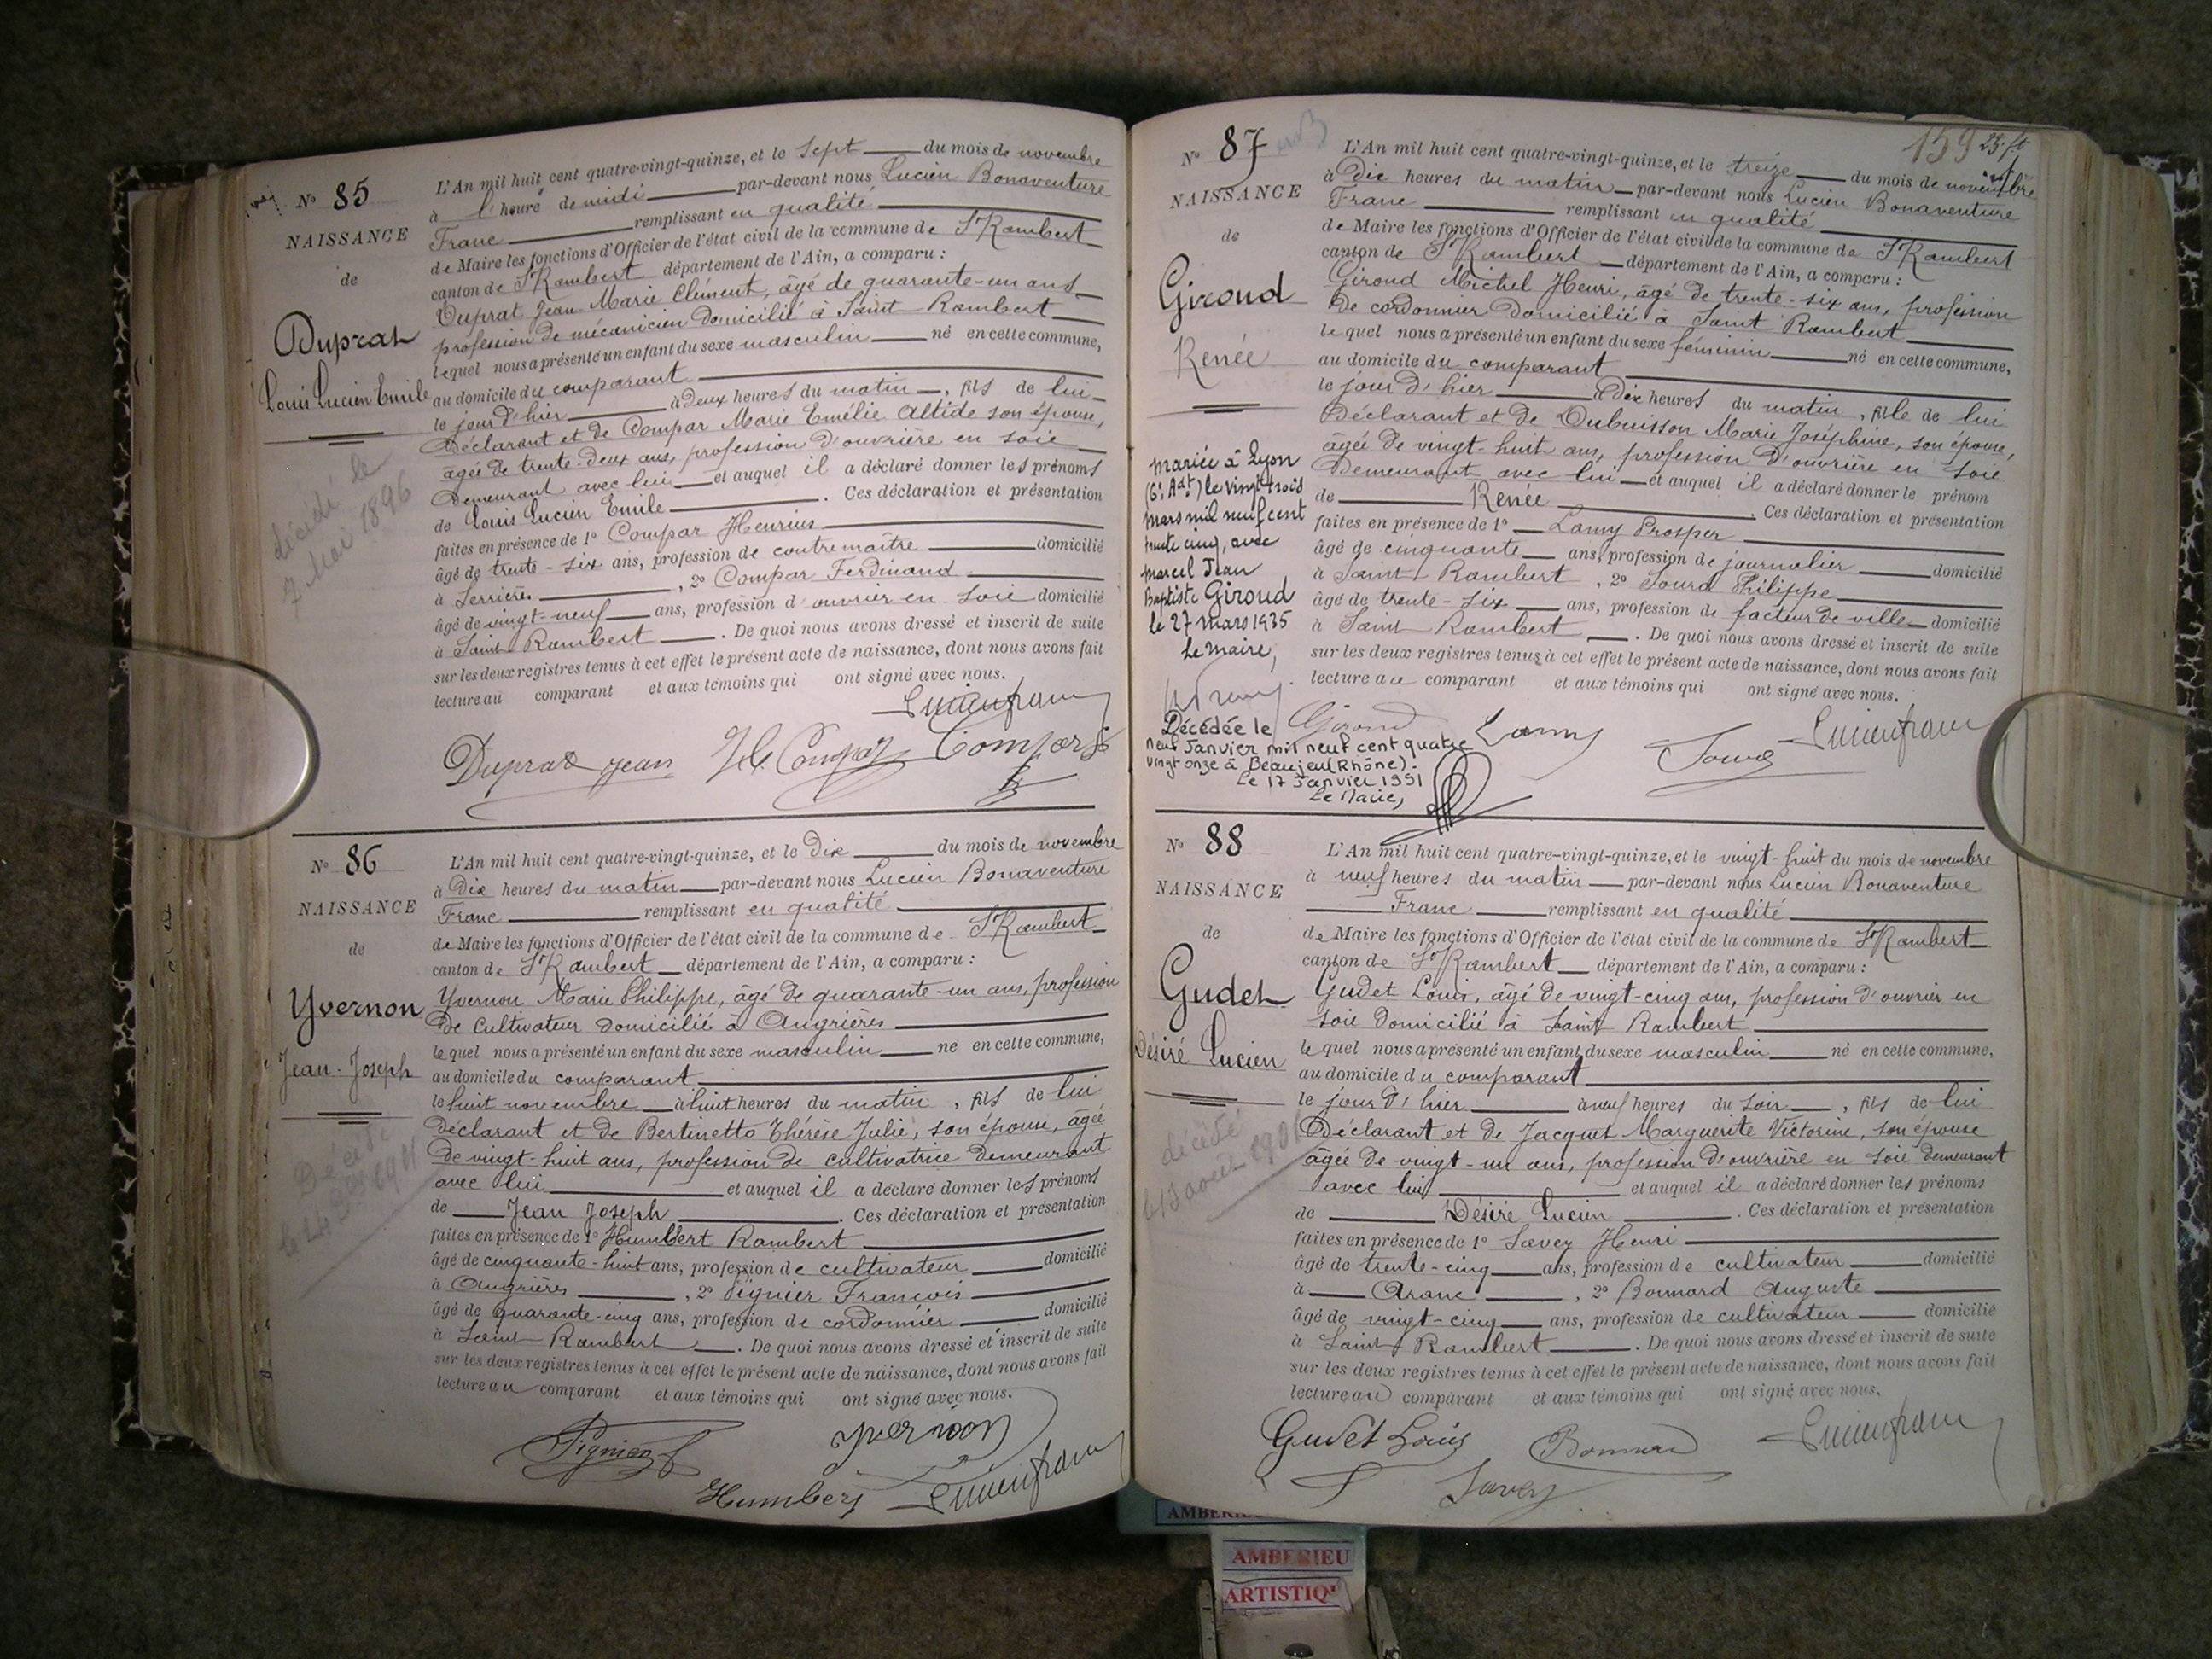 N° 85
NAISSANCE
de
Duprat
Louis Lucien Emile
décédé le
7 Mai 1896
L'An mil huit cent quatre-vingt-quinze, et le sept du mois de novembre
à l'heure de midi par-devant nous Lucien Bonaventure
Franc remplissant en qualité
de Maire les fonctions d'Officier de l'état civil de la commune de St Rambert
canton de St Rambert département de l'Ain, a comparu :
Duprat Jean Marie Clément, âgé de quarante-un ans
profession de mécanicien domicilié à Saint Rambert
lequel nous a présenté un enfant du sexe masculin né en cette commune,
au domicile du comparant
le jour d'hier à deux heures du matin, fils de lui
Déclarant et de Compar Marie Emélie Altide son épouse,
âgée de trente-deux ans, profession d'ouvrière en soie
Demeurant avec lui et auquel il a déclaré donner les prénoms
de Louis Lucien Emile. Ces déclaration et présentation
faites en présence de 1° Compar Henrius
âgé de trente-six ans, profession de contremaître domicilié
à Serrières, 2° Compar Ferdinand
âgé de vingt-neuf ans, profession d'ouvrier en soie domicilié
à Saint Rambert. De quoi nous avons dressé et inscrit de suite
sur les deux registres tenus à cet effet le présent acte de naissance, dont nous avons fait
lecture au comparant et aux témoins qui ont signé avec nous.
Lucien franc
Duprat jean H. Compar Compar
N° 86
NAISSANCE
de
Yvernon
Jean-Joseph
Décédé
L'An mil huit cent quatre-vingt-quinze, et le Dix du mois de novembre
à Dix heures du matin par-devant nous Lucien Bonaventure
Franc remplissant en qualité
de Maire les fonctions d'Officier de l'état civil de la commune de St Rambert
canton de St Rambert département de l'Ain, a comparu :
Yvernon Marie Philippe, âgé de quarante-un ans, profession
De cultivateur domicilié à Angrières
lequel nous a présenté un enfant du sexe masculin né en cette commune,
au domicile du comparant
le huit novembre à huit heures du matin, fils de lui
Déclarant et de Bertinetto Thérèse Julie, son épouse, âgée
De vingt-huit ans, profession de cultivatrice demeurant
avec lui et auquel il a déclaré donner les prénoms
de Jean Joseph. Ces déclaration et présentation
faites en présence de 1° Humbert Rambert
âgé de cinquante-huit ans, profession de cultivateur domicilié
à Angrières, 2° Pignier François
âgé de quarante-cinq ans, profession de cordonnier domicilié
à Saint Rambert. De quoi nous avons dressé et inscrit de suite
sur les deux registres tenus à cet effet le présent acte de naissance, dont nous avons fait
lecture au comparant et aux témoins qui ont signé avec nous.
Pignier yvernon
Humbert Lucien franc
159
N° 87
NAISSANCE
de
Giroud
Renée
mariée à Lyon
(6e Ardt) le vingt trois
mars mil neuf cent
trente cinq, avec
Marcel Jean
Baptiste Giroud
le 27 mars 1935
Le Maire,
Décédée le
neuf Janvier mil neuf cent quatre
vingt onze à Beaujeu (Rhône).
Le 17 Janvier 1991
Le Maire,
L'An mil huit cent quatre-vingt-quinze, et le treize du mois de novembre
à Dix heures du matin par-devant nous Lucien Bonaventure
Franc remplissant en qualité
de Maire les fonctions d'Officier de l'état civil de la commune de St Rambert
canton de St Rambert département de l'Ain, a comparu :
Giroud Michel Henri, âgé de trente-six ans, profession
De cordonnier Domicilié à Saint Rambert
lequel nous a présenté un enfant du sexe féminin né en cette commune,
au domicile du comparant
le jour d'hier à dix heures du matin, fille de lui
Déclarant et de Dubuisson Marie Joséphine, son épouse,
âgée de vingt-huit ans, profession d'ouvrière en soie
Demeurant avec lui et auquel il a déclaré donner le prénom
de Renée. Ces déclaration et présentation
faites en présence de 1° Lamy Prosper
âgé de cinquante ans, profession de journalier domicilié
à Saint Rambert, 2° Sourd Philippe
âgé de trente-six ans, profession de facteur de ville domicilié
à Saint Rambert. De quoi nous avons dressé et inscrit de suite
sur les deux registres tenus à cet effet le présent acte de naissance, dont nous avons fait
lecture au comparant et aux témoins qui ont signé avec nous.
Giroud Lamy Sourd Lucien franc
N° 88
NAISSANCE
de
Gudet
Désiré Lucien
décédé
L'An mil huit cent quatre-vingt-quinze, et le vingt-huit du mois de novembre
à neuf heures du matin par-devant nous Lucien Bonaventure
Franc remplissant en qualité
de Maire les fonctions d'Officier de l'état civil de la commune de St Rambert
canton de St Rambert département de l'Ain, a comparu :
Gudet Louis, âgé de vingt-cinq ans, profession d'ouvrier en
soie domicilié à Saint Rambert
lequel nous a présenté un enfant du sexe masculin né en cette commune,
au domicile du comparant
le jour d'hier à neuf heures du soir, fils de lui
Déclarant et de Jacquet Marguerite Victorine, son épouse
âgée de vingt-un ans, profession d'ouvrière en soie demeurant
avec lui et auquel il a déclaré donner les prénoms
de Désiré Lucien. Ces déclaration et présentation
faites en présence de 1° Savey Henri
âgé de trente-cinq ans, profession de cultivateur domicilié
à Aranc, 2° Bonnard Auguste
âgé de vingt-cinq ans, profession de cultivateur domicilié
à Saint Rambert. De quoi nous avons dressé et inscrit de suite
sur les deux registres tenus à cet effet le présent acte de naissance, dont nous avons fait
lecture au comparant et aux témoins qui ont signé avec nous.
Gudet Louis Bonnard Lucien franc
Savey
AMBERIEU
ARTISTIQ